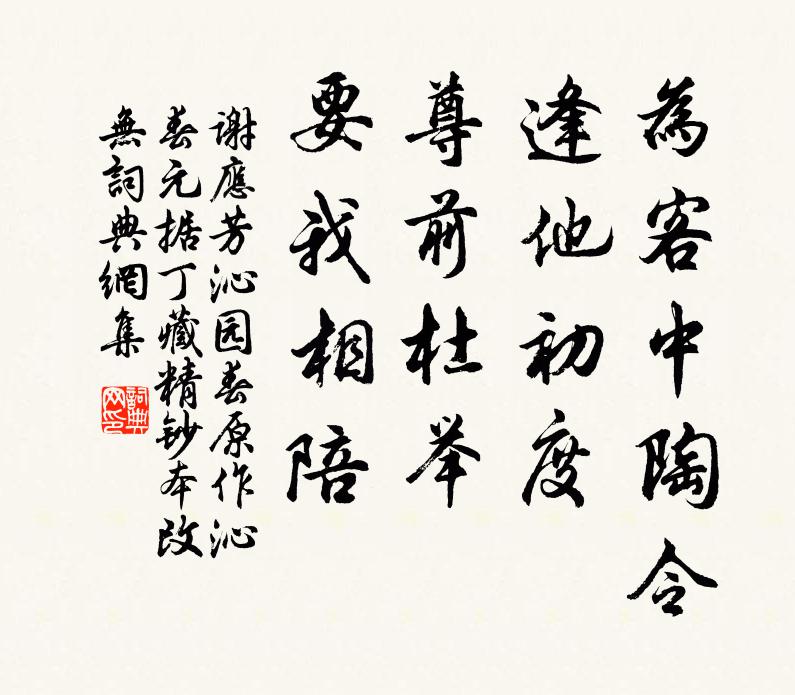 為客中陶令
逢他初度
尊前杜举
要我相陪
谢應芳沁园春原作沁
春元据丁藏精鈔本改
無詞典網集
詞典网印